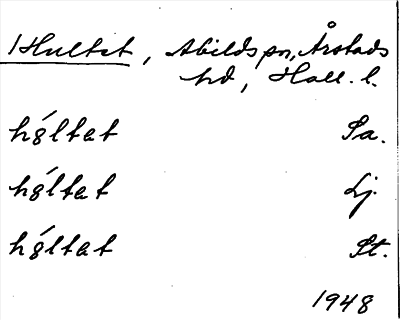 Hultet, Abilds sn, Årstads
hd, Hall. l.
hóltat Sa.
hóltet Lj.
hóltat St.
1948